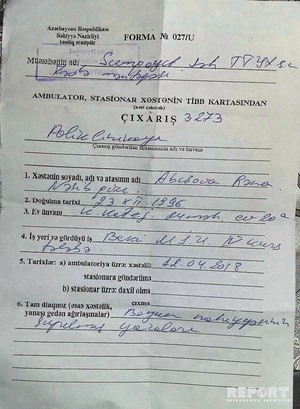 Azərbaycan Respublikası
Səhiyyə Nazirliyi
təsdiq etmişdir
FORMA № 027/U
Müəssisənin adı Sumqayıt
AMBULATOR, STASIONAR XƏSTƏNİN TİBB KARTASINDAN
(xətt çəkərək)
ÇIXARIŞ 3273
Poliklinikaya
Çıxarış göndərilən müəssisənin adı və ünvanı
1. Xəstənin soyadı, adı və atasının adı Abbasova Rəna
2. Doğulma tarixi 23 XII 1996
3. Ev ünvanı ev 20a
4. İş yeri və gördüyü iş Bakı IV kurs
tələbə
5. Tarixlər: a) ambulatoriya üzrə: xəstəlik 12.04.2018
stasionara göndərilmə
b) stasionar üzrə: daxil olma
çıxma
6. Tam diaqnoz (əsas xəstəlik,
yanaşı gedən ağırlaşmalar) Boyun nahiyyəsinin
yaraları
REPORT
INFORMATION AGENCY